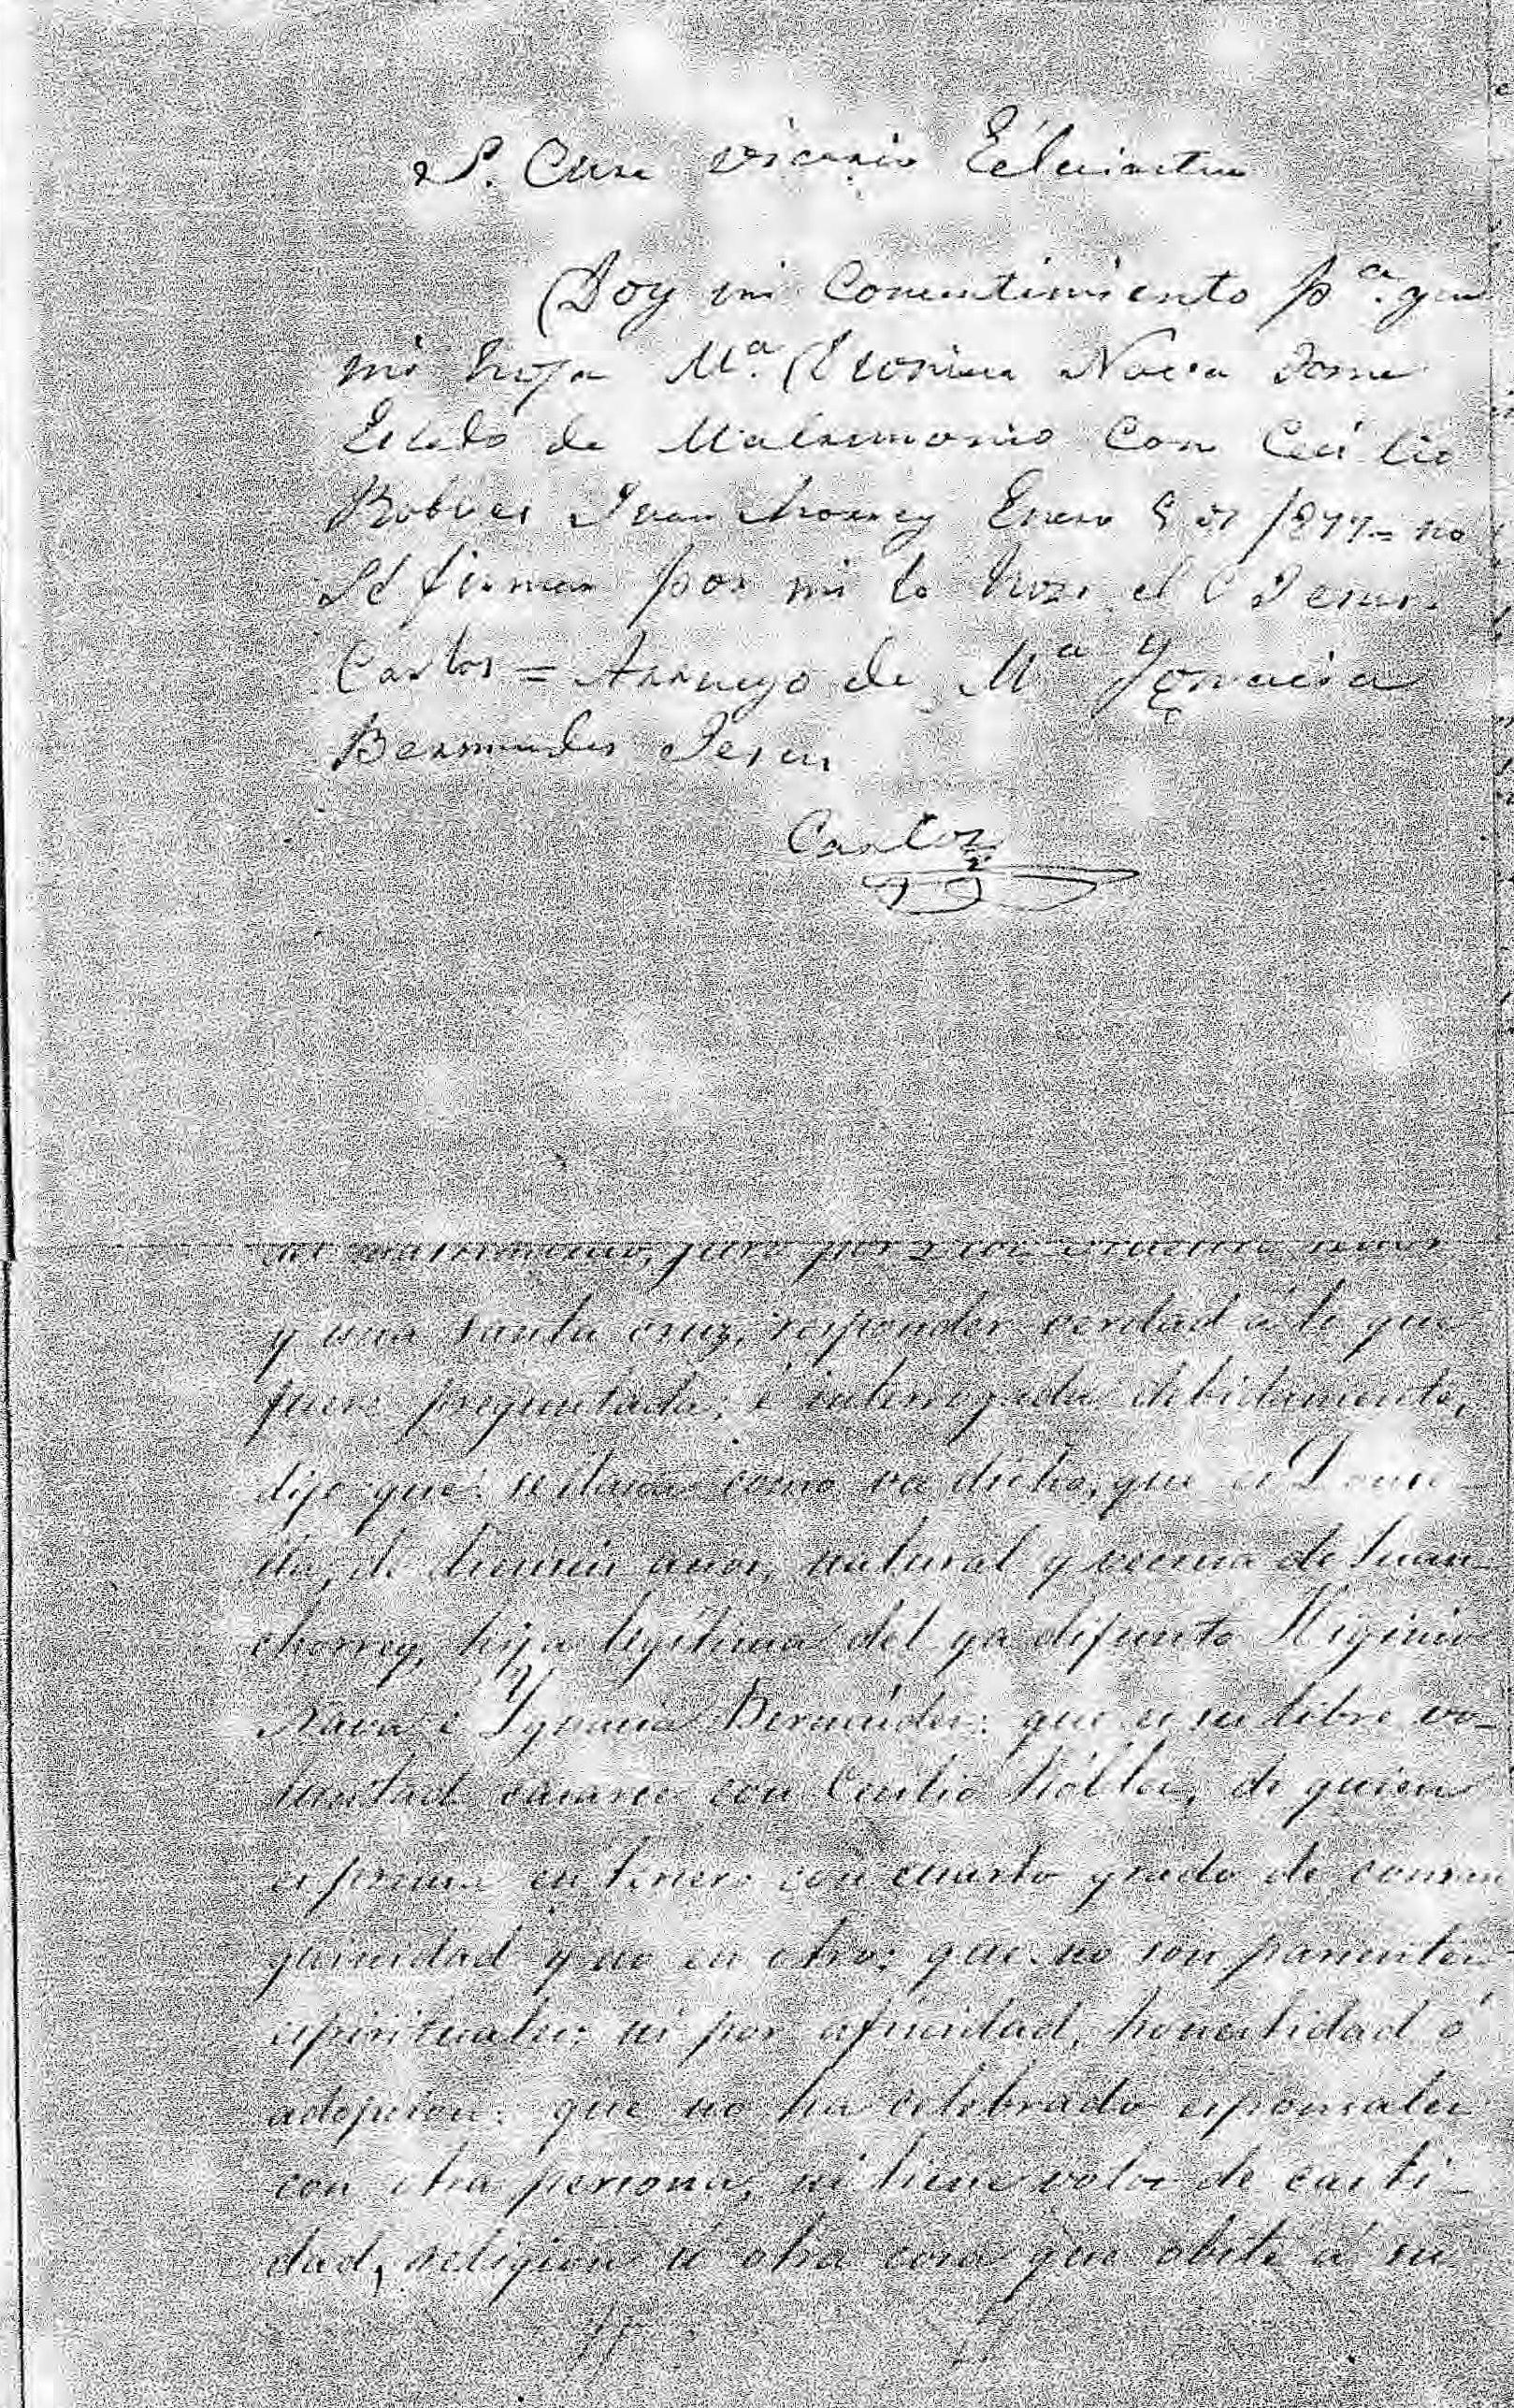 S. Cura Vicario Eclesiastico
Doy mi Consentimiento p.ª que
mi hija M.ª Nava tome
Estado de Matrimonio Con Cecilio
Robles Juanchorrey Enero 5 de 1877 = no
Sé firmar por mi lo hizo el C Jesus
Carlos = Arruego de Mª Ygnacia
Bermudes Jesus
Carlos
de matrimonio, juró por
y una santa cruz, responder verdad á lo que
fuere preguntada; é interrogada debidamente,
dijo que: se llama como va dicho, que es Donce
lla, de años, natural y vecina de Juan
chorrey, hija legítima del ya difunto Higinio
Nava é Ygnacia Bermudes: que es su libre vo-
luntad casarse con Cecilio Robles, de quien
es prima en tercero con cuarto grado de consan
guinidad y no en otro; que no son parientes
espirituales: ni por afinidad, honestidad ó
adopcion: que no ha celebrado esponsales
con otra persona, ni tiene voto de casti-
dad, religion ú otra cosa que obste á su